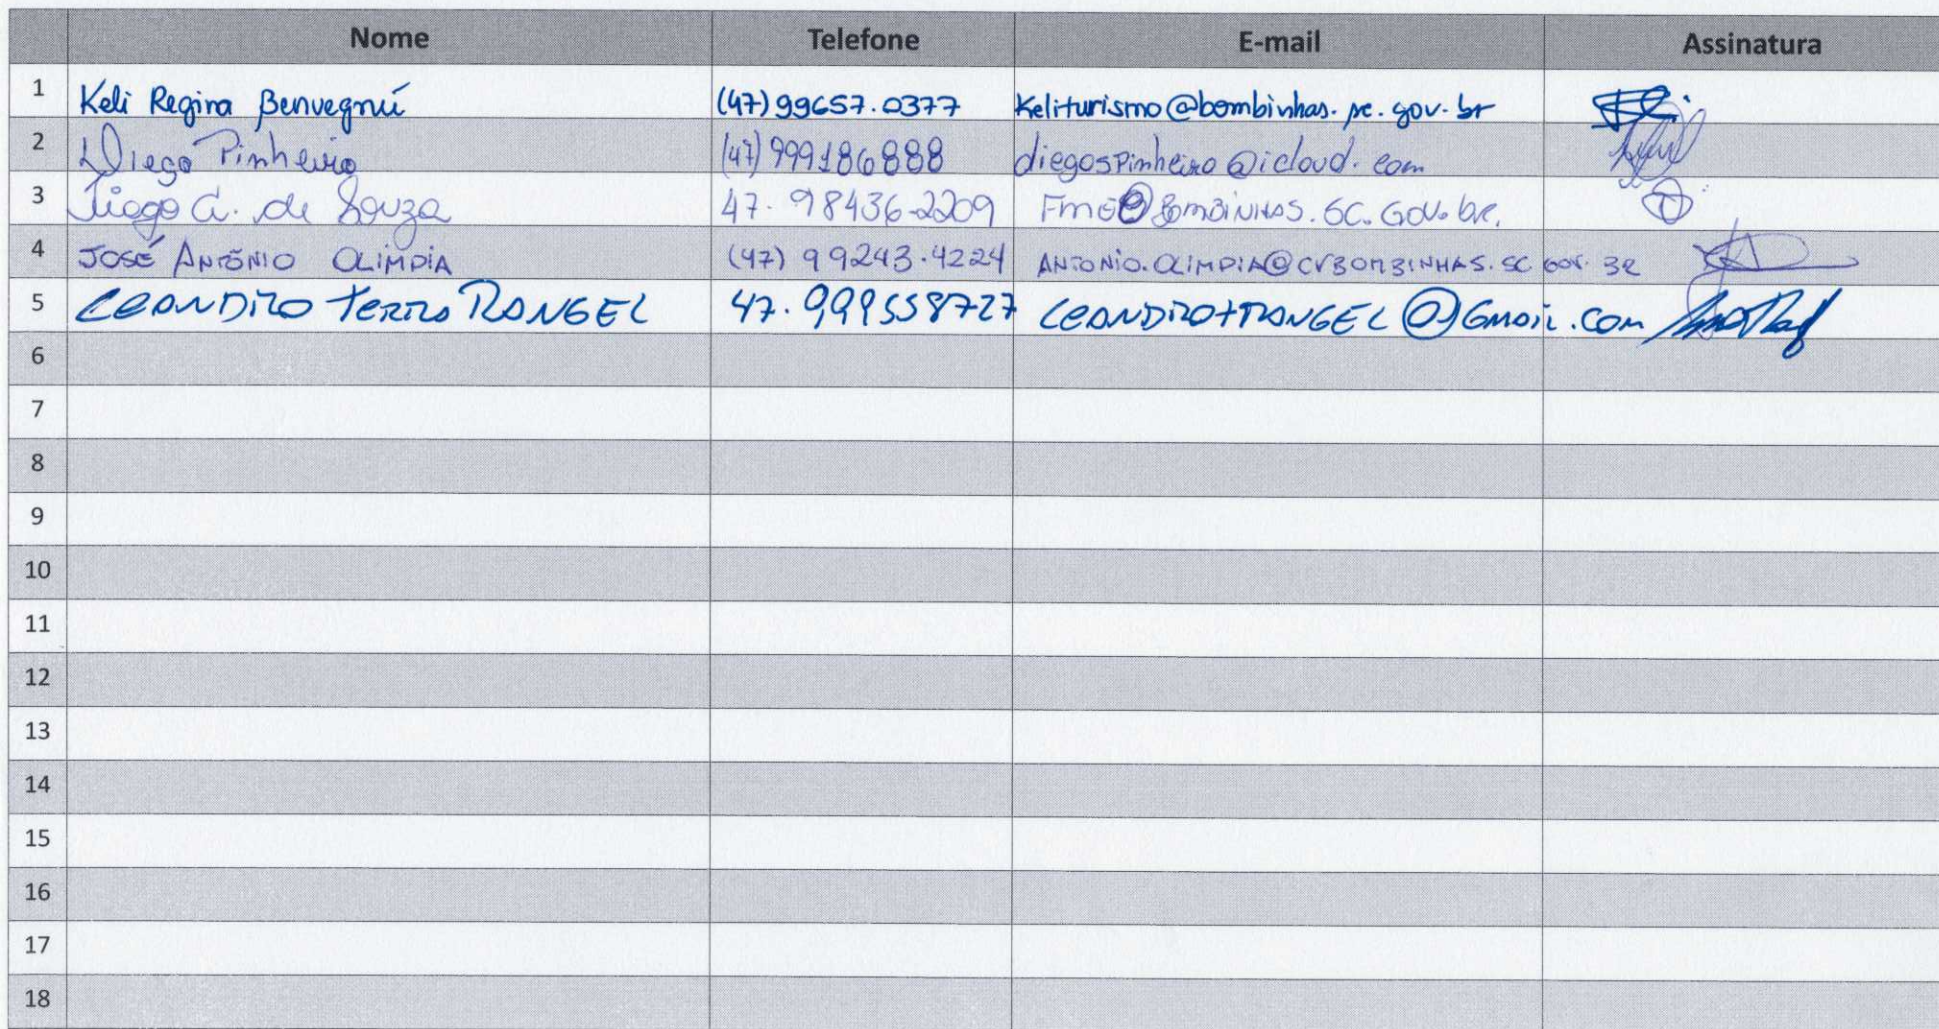 Nome Telefone E-mail Assinatura
1 Keli Regina Benvegnú (47) 99657.0377 Keliturismo@bombinhas.sc.gov.br
2 Diego Pinheiro (47) 999186888 diegospinheiro@icloud.com
3 Tiago A. de Souza 47. 98436-2209 Fme@BOMBINHAS.SC.GOV.br.
4 JOSÉ ANTÔNIO OLIMPIA (47) 99243.4224 ANTONIO.OLIMPIA@CVBOMBINHAS.SC.GOV.BR
5 LEANDRO TERRA RANGEL 47. 999558727 LEANDROTRANGEL@GMAIL.COM
6
7
8
9
10
11
12
13
14
15
16
17
18